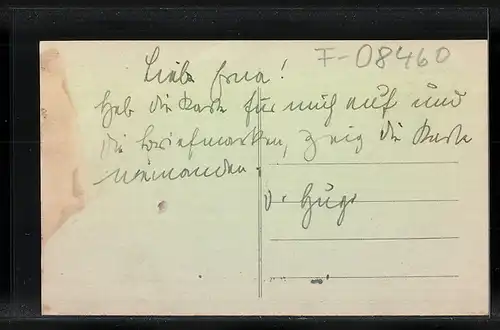 F-08460
Liebe Erna!
Heb die Karte für mich auf und
die Briefmarken, zeig die Karte
niemanden.
d. Hugo